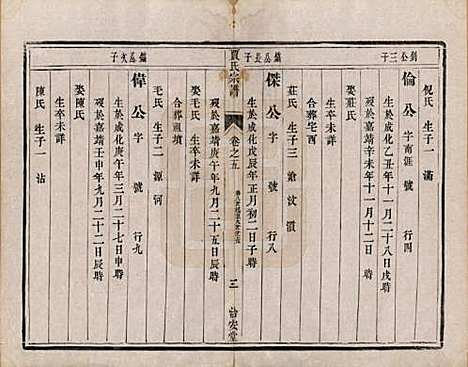 釗公三子
倪氏 生子一 滿
倫公 字南涯 號 行四
生於成化乙丑年十一月二十八日戌時
歿於嘉靖辛未年十一月十二日
娶莊氏
莊氏 生子三 滄 汶 濵
合葬宅西
鎡公長子
傑公 字 號 行八
生於成化戊辰年正月初二日子時
歿於嘉靖庚午年九月二十五日辰時
賈氏宗譜
卷之五
三
怡安堂
娶毛氏 生卒未詳
合葬祖塋
毛氏 生子二 源 河
鎡公次子
偉公 字 號 行九
生於成化庚午年三月二十七日申時
歿於嘉靖壬申年九月二十二日辰時
娶陳氏
生卒未詳
陳氏 生子 沽